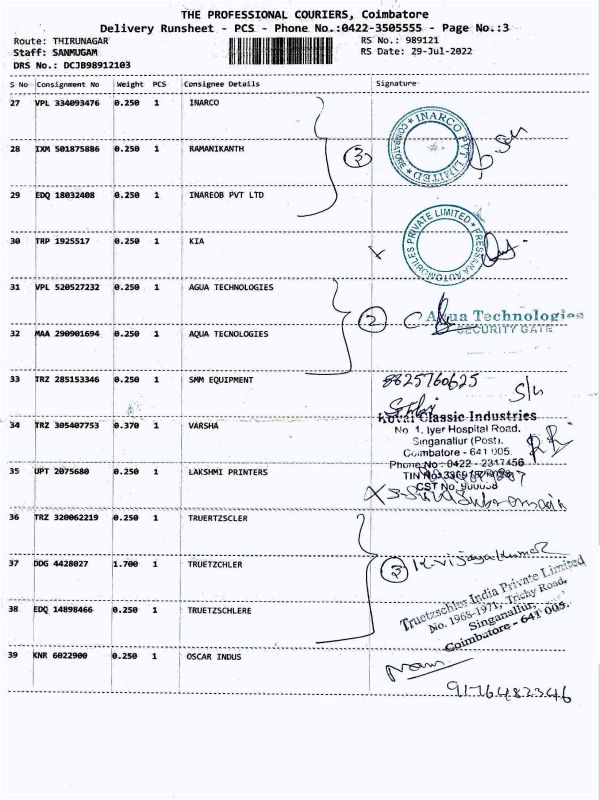 THE PROFESSIONAL COURIERS, Coimbatore
Delivery Runsheet - PCS - Phone No.:0422-3505555 - Page No.:3
Route: THIRUNAGAR RS No.: 989121
Staff: SANMUGAM RS Date: 29-Jul-2022
DRS No.: DCJB98912103
S No Consignment No Weight PCS Consignee Details Signature
27 VPL 334093476 0.250 1 INARCO
INARCO PVT LIMITED
28 IXM 501875886 0.250 1 RAMANIKANTH
3
29 EDQ 18032408 0.250 1 INAREOB PVT LTD
30 TRP 1925517 0.250 1 KIA
PRESSANA AUTOMOBILES PRIVATE LIMITED
31 VPL 520527232 0.250 1 AGUA TECHNOLOGIES
2
Aqua Technologies
SECURITY GATE
32 MAA 290901694 0.250 1 AQUA TECNOLOGIES
33 TRZ 285153346 0.250 1 SMM EQUIPMENT
8825760625
34 TRZ 305407753 0.370 1 VARSHA
Kovai Classic Industries
No 1, Iyer Hospital Road,
Singanallur (Post),
Coimbatore - 641 005.
Phone No : 0422 - 2317456
35 UPT 2075680 0.250 1 LAKSHMI PRINTERS
TIN No
CST No
36 TRZ 320062219 0.250 1 TRUERTZSCLER
37 DDG 4428027 1.700 1 TRUETZCHLER
3 K. Vijayakumar
Truetzschler India Private Limited
No. 1968-1971, Trichy Road,
Singanallur,
Coimbatore - 641 005.
38 EDQ 14898466 0.250 1 TRUETZSCHLERE
39 KNR 6022900 0.250 1 OSCAR INDUS
9176482346